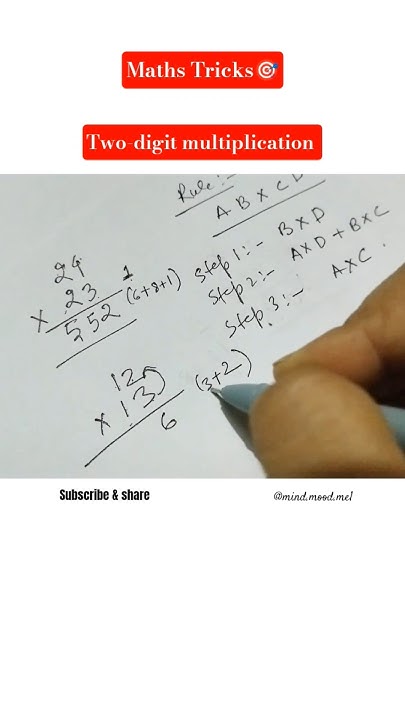 Maths Tricks🎯
Two-digit multiplication
Rule:-
A B X C D
Step 1:- B X D
Step 2:- A X D + B X C
Step 3:- A X C
24
x 23
1
552 (6+8+1)
12
x 13
6 (3+2)
Subscribe & share
@mind.mood.me1